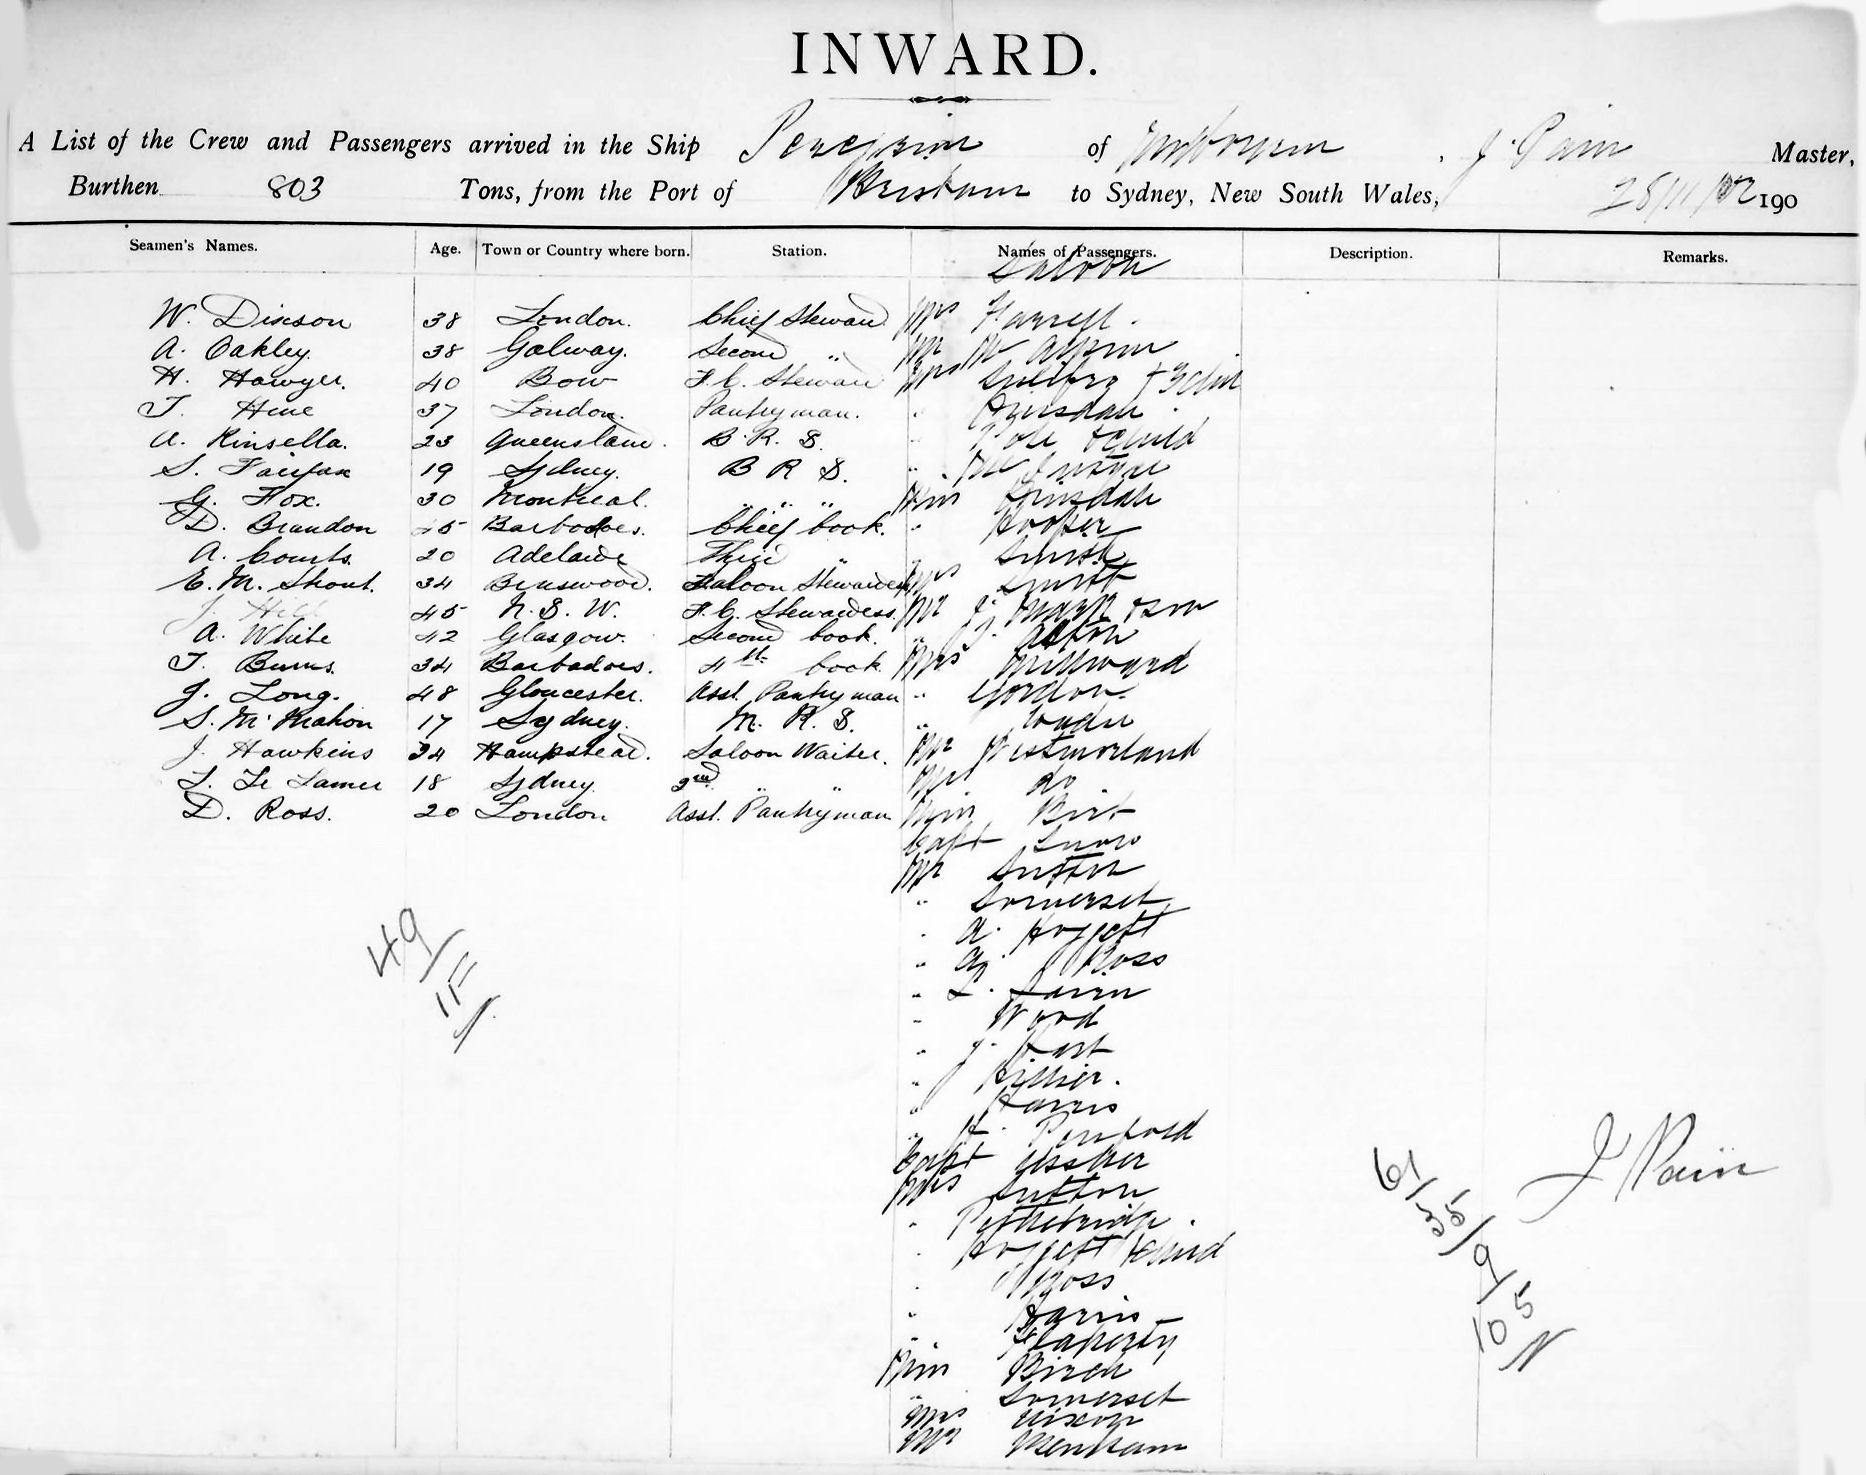 INWARD.
A List of the Crew and Passengers arrived in the Ship Peregrine of Melbourne, J. Pain Master,
Burthen 803 Tons, from the Port of Brisbane to Sydney, New South Wales, 28/11/02 190
Seamen's Names. Age. Town or Country where born. Station. Names of Passengers. Description. Remarks.
Saloon
W. Dixson 38 London. Chief Steward Mrs Farrell.
A. Oakley. 38 Galway. Second " Mr
H. Hawyer. 40 Bow F.C. Steward Mrs
T. Hine 37 London. Pantryman. " Hinsdale.
A. Kinsella. 23 Queensland. B. R. S. " Pole & Child
S. Fairfax 19 Sydney. B R S. "
G. Fox. 30 Montreal. " " " Miss Hinsdale
D. Brandon 45 Barbadoes. Chief Cook. " Hooper
A. Counts. 20 Adelaide Third " Smith
E. M. Shout. 34 Saloon Stewardess Mrs Smith
J. Hill 45 N. S. W. F. C. Stewardess Mr J. & son
A. White 42 Glasgow. Second Cook. " J. Alston
T. Burns. 34 Barbadoes. 4th Cook Mrs Millward
J. Long. 48 Gloucester. Asst. Pantryman " Gordon
S. McMahon 17 Sydney. M. R. S. "
J. Hawkins 34 Hampstead. Saloon Waiter. Mr Westmorland
18 Sydney 2nd " " Mrs do
D. Ross. 20 London Asst. Pantryman Miss Birt
Capt Snow
Mr Sutton
" Somerset
" A. Hoggett
" G. Ross
" L.
" Ward
" J. Hart
" Hillier.
" Harris
" H. Penfold
Capt Ussher
Mrs Sutton
" Pethebridge.
" Hoggett & Child
" Ross
" Harris
" Flaherty
Miss Birch
" Somerset
Mrs Nixon
Mr Mentham
49/1F/
J Pain
61/35/9/105
N